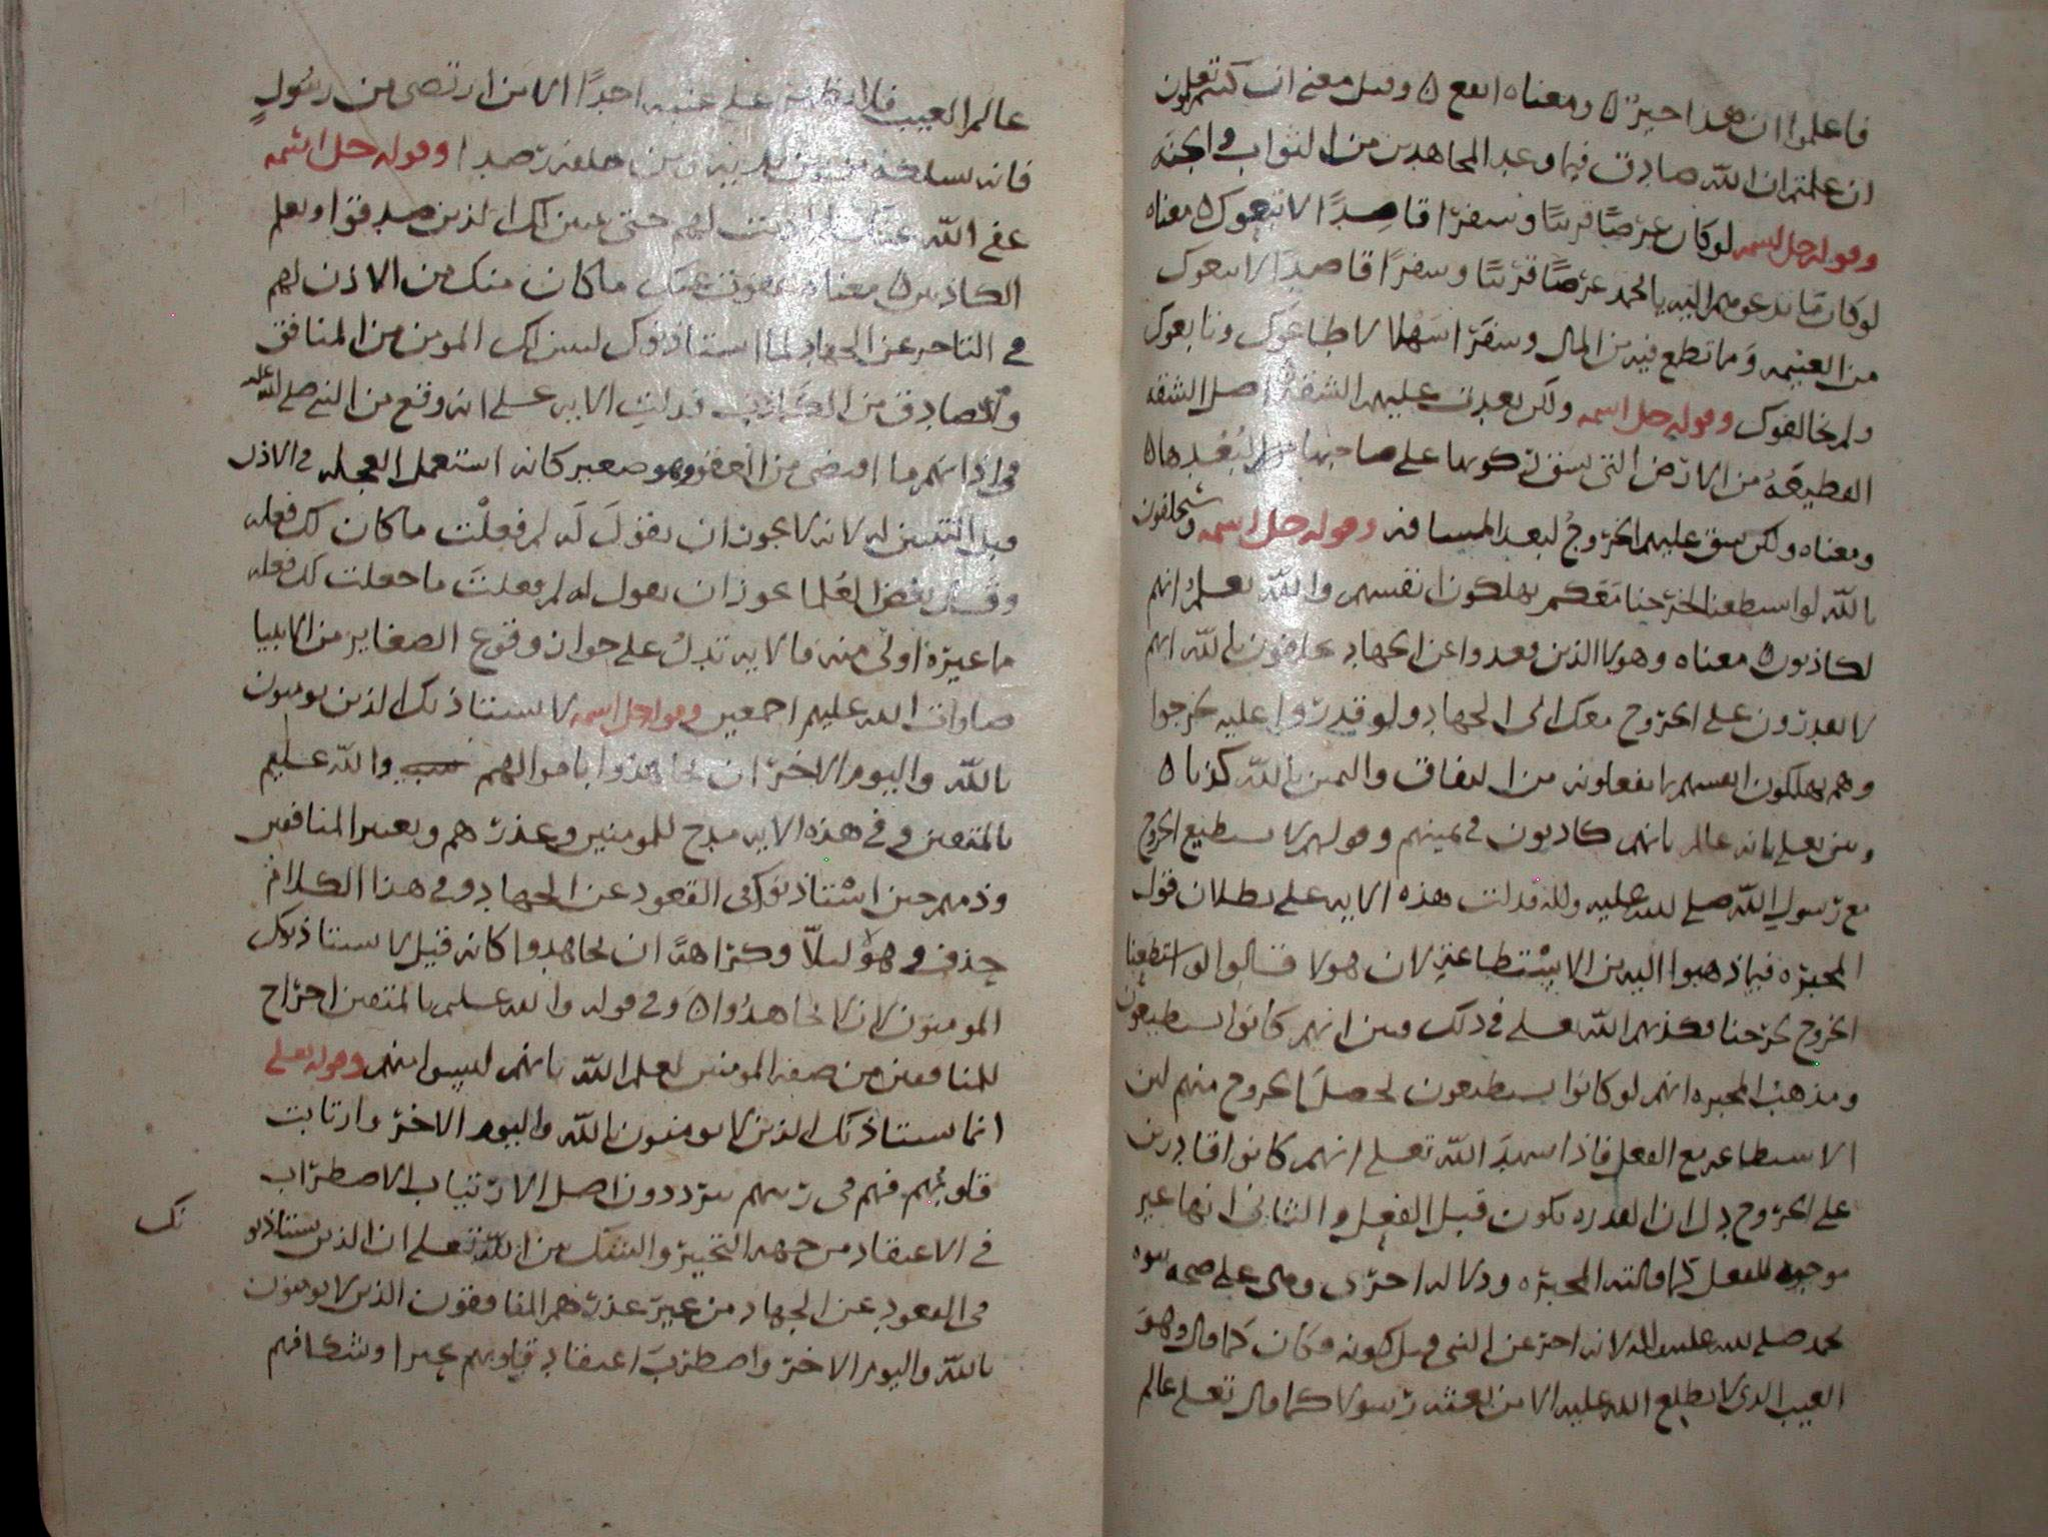 فاعلموا ان هذا خير ومعناه انفع وقيل معنى ان كنتم تعلمون
ان علمتم ان الله صادق فيما وعد المجاهدين من الثواب والجنه
وقوله جل اسمه لو كان عرضًا قريبًا وسفرًا قاصدًا لاتبعوك معناه
لو كان ما تدعوهم اليه يا محمد عرضًا قريبًا وسفرًا قاصدًا لاتبعوك
من الغنيمه وما تطمع فيه من المال وسفرًا سهلا لاطاعوك وتابعوك
ولم يخالفوك وقوله جل اسمه ولكن بعدت عليهم الشقة اصل الشقه
القطيعة من الارض التي يشق ركوبها على صاحبها لبُعدها
ومعناه ولكن شق عليهم الخروج لبعد المسافه وقوله جل اسمه وسيحلفون
بالله لو استطعنا لخرجنا معكم يهلكون انفسهم والله يعلم انهم
لكاذبون معناه وهولا الذين قعدوا عن الجهاد يحلفون بالله انهم
لا يقدرون على الخروج معك الى الجهاد ولو قدروا عليه لخرجوا
وهم يهلكون انفسهم بما يفعلونه من النفاق واليمين بالله كذبا
وبين تعلى بانه عالم بانهم كاذبون في يمينهم وقولهم لا نستطيع الخروج
مع رسول الله صلى الله عليه واله فدلت هذه الايه على بطلان قول
المجبره فيما ذهبوا اليه من الاستطاعه لان هولا قالوا لو استطعنا
الخروج لخرجنا فكذبهم الله تعلى في ذلك وبين انهم كانوا يستطيعون
ومذهب المجبره انهم لو كانوا يستطيعون لحصل الخروج منهم لان
الاستطاعه مع الفعل فاذا شهد الله تعلى انهم كانوا قادرين
على الخروج دل ان القدره تكون قبل الفعل والثاني انها غير
موجبه للفعل كما قالته المجبره ودلاله اخرى وهي على صحه نبوه
محمد صلى الله عليه واله لانه اخبر عن الشي قبل كونه فكان كما قال وهو
الغيب الذي لا يطلع الله عليه الا من بعثه رسولا كما قال تعلى عالم
عالم الغيب فلا يظهر على غيبه احدًا الا من ارتضى من رسولٍ
فانه يسلك من بين يديه ومن خلفه رصدا وقوله جل اسمه
عفى الله عنك لم اذنت لهم حتى يتبين لك الذين صدقوا وتعلم
الكاذبين معناه يعفون عنك ما كان منك من الاذن لهم
في التاخر عن الجهاد لما استاذنوك ليتبين لك المومن من المنافق
والصادق من الكاذب فدلت الايه على انه وقع من النبي صلى الله عليه
في اذانهم ما اقتضى من العفو وهو صغير كانه استعمل العجله في الاذن
قبل التبين له لانه لا يجوز ان يقول له لم فعلت ما كان لك فعله
وقال بعض العلما يجوز ان يقول له لم فعلت ما جعلت لك فعله
ما غيره اولى منه فالايه تدل على جواز وقوع الصغاير من الانبيا
صلوات الله عليهم اجمعين وقوله جل اسمه لا يستاذنك الذين يومنون
بالله واليوم الاخر ان يجاهدوا باموالهم والله عليم
بالمتقين وفي هذه الايه مدح للمومنين وعذرهم وتعيير المنافقين
وذمهم حين استاذنوك في القعود عن الجهاد وفي هذا الكلام
حذف وهو ليلا وكراهة ان يجاهدوا كانه قيل لا يستاذنوك
المومنون لان لا يجاهدوا وفي قوله والله عليم بالمتقين اخراج
للمنافقين من صفه المومنين لعلم الله بانهم ليسوا منهم وقوله تعلى
انما يستاذنك الذين لا يومنون بالله واليوم الاخر وارتابت
قلوبهم فهم في ريبهم يترددون اصل الارتياب الاضطراب
في الاعتقاد من جهه التحير والشك بين الله تعلى ان الذين يستاذنو
نك
في القعود عن الجهاد من غير عذر هم المنافقون الذين لا يومنون
بالله واليوم الاخر واضطرب اعتقاد قلوبهم تحيرا وشكا فهم